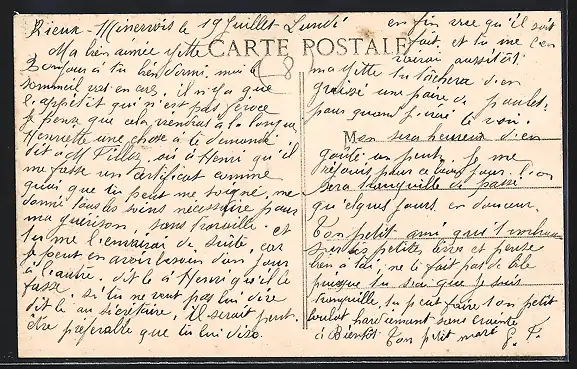 Rieux-Minervois le 19 Juillet Lundi
CARTE POSTALE
Ma bien aimée Yette
Bonjour à tu bien dormi, moi le
sommeil est en cas, il n'y a que
l'appétit qui n'est pas féroce
je pense que cela viendrai à la longue
Henriette une chose à te demandé
dit à M Pilloz, ou à Henri qu'il
me fasse un certificat comme
quoi que tu peut me soigné, me
donné tous les soins nécessaire pour
ma guérison sans travaille et
tu me l'enverrai de suite, car
je peut en avoir besoin d'un jour
à l'autre. dit le à Henri qu'il le
fasse, si tu ne veut pas lui dire
dit le au secrétaire, il serait peut-
être préférable que tu lui dise.
enfin vrai qu'il soit
fait, et tu me l'en
verrai aussitôt
ma Yette tu tâchera d'en
graissé une paire de poulet
pour quand j'irai te voir.
Mon sera heureux d'en
goûté un peut. Je me
réjouis pour ce beau jour! on
sera tranquille de passé
quelques jours en douceur.
Ton petit ami qui t'embrasse
sur tes petites lèvres et pense
bien à toi, ne te fait pas de bile
puisque tu sai que je suis
tranquille, tu peut faire ton petit
boulot hardiement sans crainte
à Bientôt Ton petit mari G. F.
8